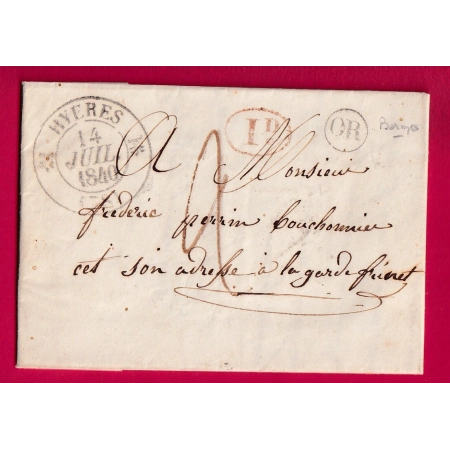 HYERES
14
JUIL
1840
1D
OR
A Monsieur
2
frederic perrin bouchonnier
cet son adresse à la garde freinet